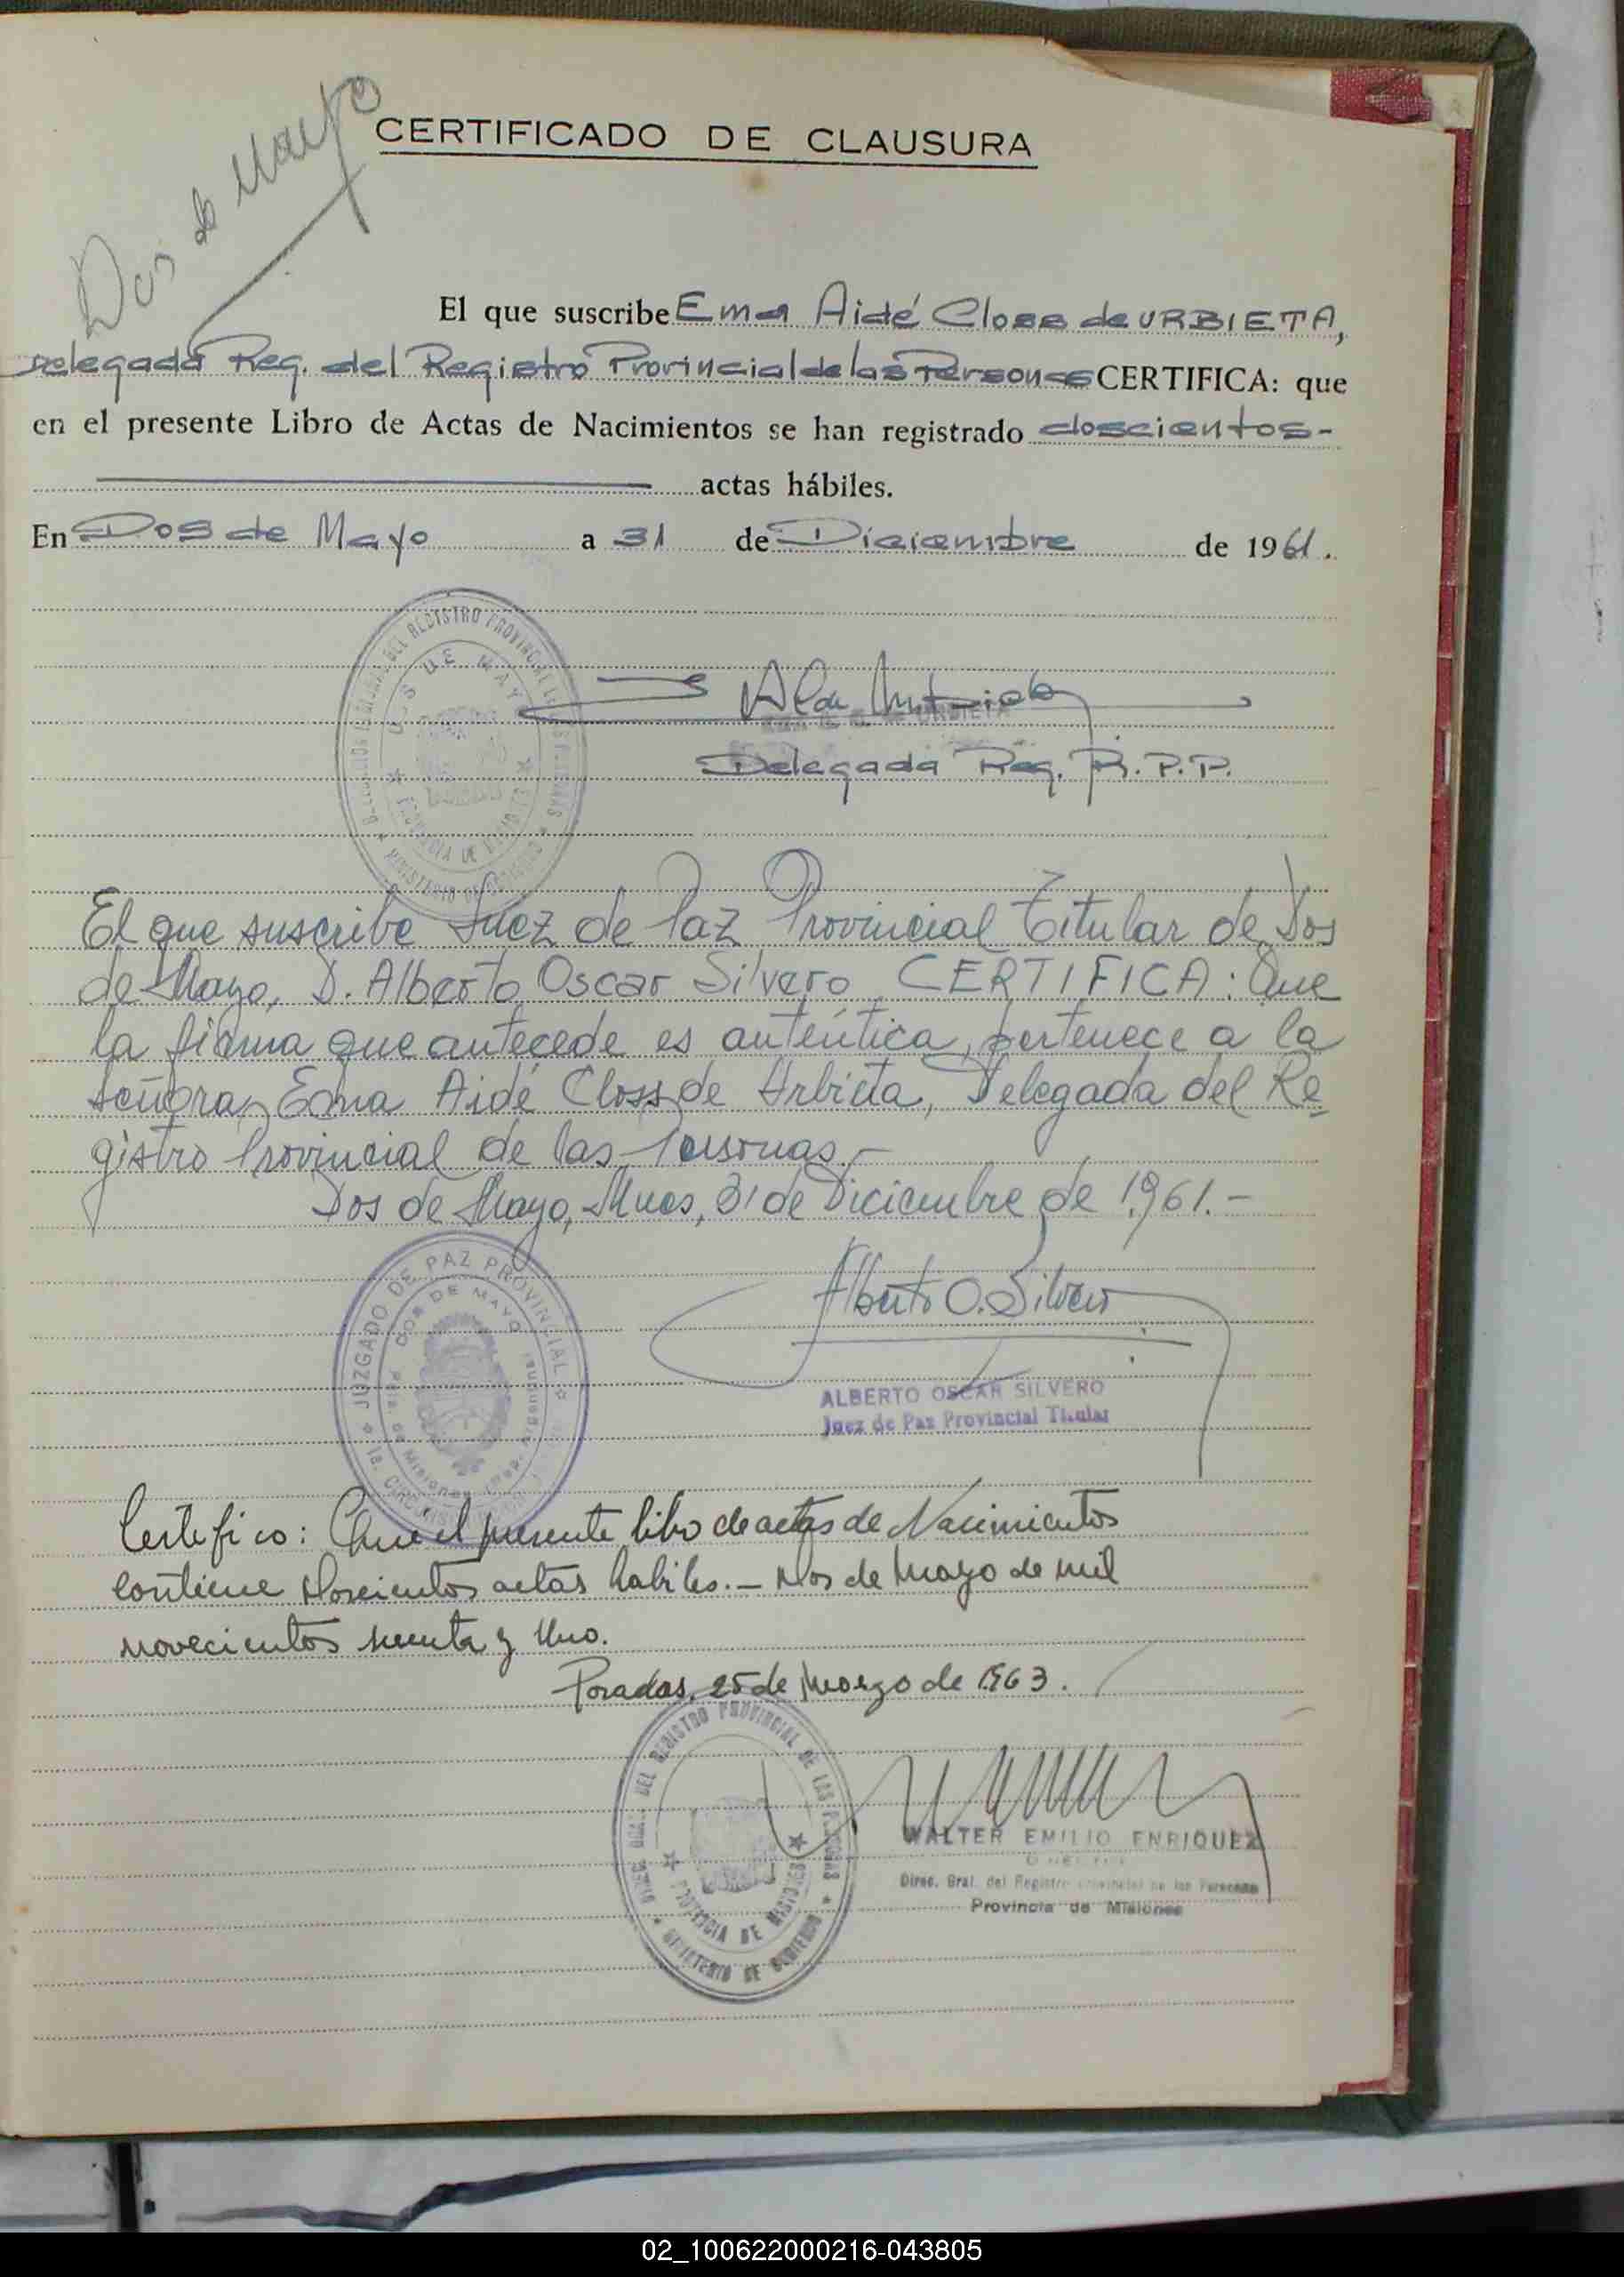 Dos de Mayo
CERTIFICADO DE CLAUSURA
El que suscribe Ema Aidé Closs de URBIETA,
Delegada Reg. del Registro Provincial de las Personas CERTIFICA: que
en el presente Libro de Actas de Nacimientos se han registrado doscientos-
actas hábiles.
En Dos de Mayo a 31 de Diciembre de 1961.
DEL REGISTRO PROVINCIAL
DOS DE MAYO
PROVINCIA DE MISIONES
MINISTERIO DE GOBIERNO
URBIETA
Delegada Reg. R.P.P.
El que suscribe Juez de Paz Provincial Titular de Dos
de Mayo, D. Alberto Oscar Silvero, CERTIFICA: Que
la firma que antecede es auténtica, pertenece a la
señora, Edna Aidé Closs de Urbieta, Delegada del Re-
gistro Provincial de las Personas.-
Dos de Mayo, Mnes, 31 de Diciembre de 1961.-
JUZGADO DE PAZ PROVINCIAL
DOS DE MAYO
Pcia. de Misiones
1a. CIRCUNSCRIPCION
Alberto O. Silvero
ALBERTO OSCAR SILVERO
Juez de Paz Provincial Titular
Certifico: Que el presente libro de actas de Nacimientos
contiene doscientos actas habiles.- Dos de Mayo de mil
novecientos sesenta y Uno.
Posadas, 25 de Marzo de 1963.
DIREC. GRAL. DEL REGISTRO PROVINCIAL DE LAS PERSONAS
PROVINCIA DE MISIONES
MINISTERIO DE GOBIERNO
WALTER EMILIO ENRIQUEZ
Direc. Gral. del Registro Provincial de las Personas
Provincia de Misiones
02_100622000216-043805